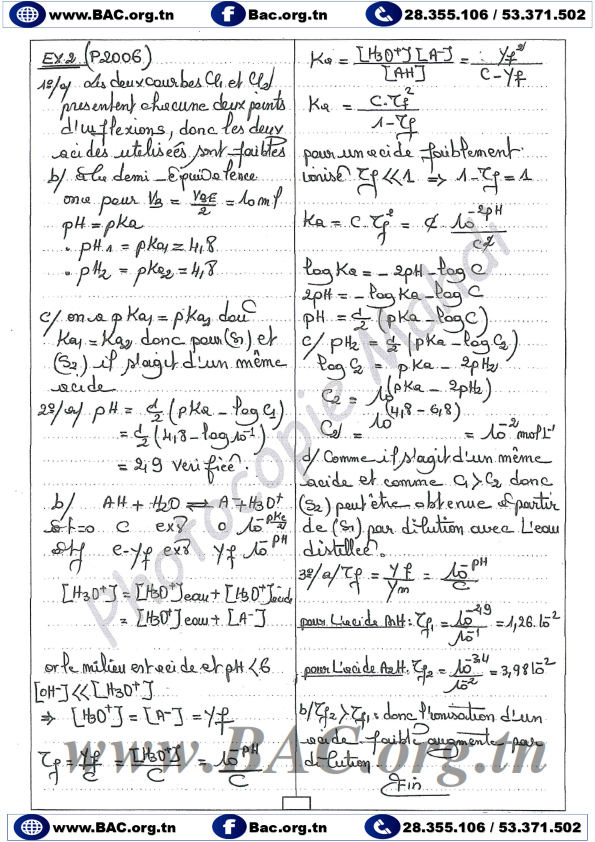 www.BAC.org.tn Bac.org.tn 28.355.106 / 53.371.502
EX2 (P2006)
1°/a) Les deux courbes C1 et C2)
présentent chacune deux points
d'inflexions, donc les deux
acides utilisés sont faibles
b) à la demi-équivalence
on a pour VB = VBE/2 = 10 ml
pH = pKa
. pH1 = pKa1 = 4,8
. pH2 = pKa2 = 4,8
c/ on a pKa1 = pKa2 donc
Ka1 = Ka2 donc pour (S1) et
(S2) il s'agit d'un même
acide
2°/a) pH = 1/2 (pKa - log C1)
= 1/2 (4,8 - log 10^-1)
= 2,9 verifieé.
b/ AH + H2O ⇌ A- + H3O+
à t=0 C excé 0 10^-pKe/2
à tf C-yf excé yf 10^-pH
[H3O+] = [H3O+]eau + [H3O+]acide
= [H3O+]eau + [A-]
or le milieu est acide et pH < 6
[OH-] << [H3O+]
⇒ [H3O+] = [A-] = yf
τf = yf/C = [H3O+]/C = 10^-pH/C
Ka = [H3O+][A-]/[AH] = yf²/C-yf
Ka = C.τf²/1-τf
pour un acide faiblement
ionisé τf << 1 ⇒ 1-τf = 1
Ka = C.τf² = C 10^-2pH/C²
log Ka = - 2pH - log C
2pH = - log Ka - log C
pH = 1/2 (pKa - log C)
c/ pH2 = 1/2 (pKa - log C2)
log C2 = pKa - 2pH2
C2 = 10^(pKa - 2pH2)
C2 = 10^(4,8 - 6,8) = 10^-2 mol L-1
d/ Comme il s'agit d'un même
acide et comme C1 > C2 donc
(S2) peut être obtenue à partir
de (S1) par dilution avec l'eau
distillée.
3°/a/ τf = yf/ym = 10^-pH/C
pour l'acide A1H: τf1 = 10^-2,9/10^-1 = 1,26.10^-2
pour l'acide A2H: τf2 = 10^-3,4/10^-2 = 3,98 10^-2
b/ τf2 > τf1 : donc l'ionisation d'un
acide faible augmente par
dilution
Fin
Photocopie Mahdi
www.BAC.org.tn
www.BAC.org.tn Bac.org.tn 28.355.106 / 53.371.502